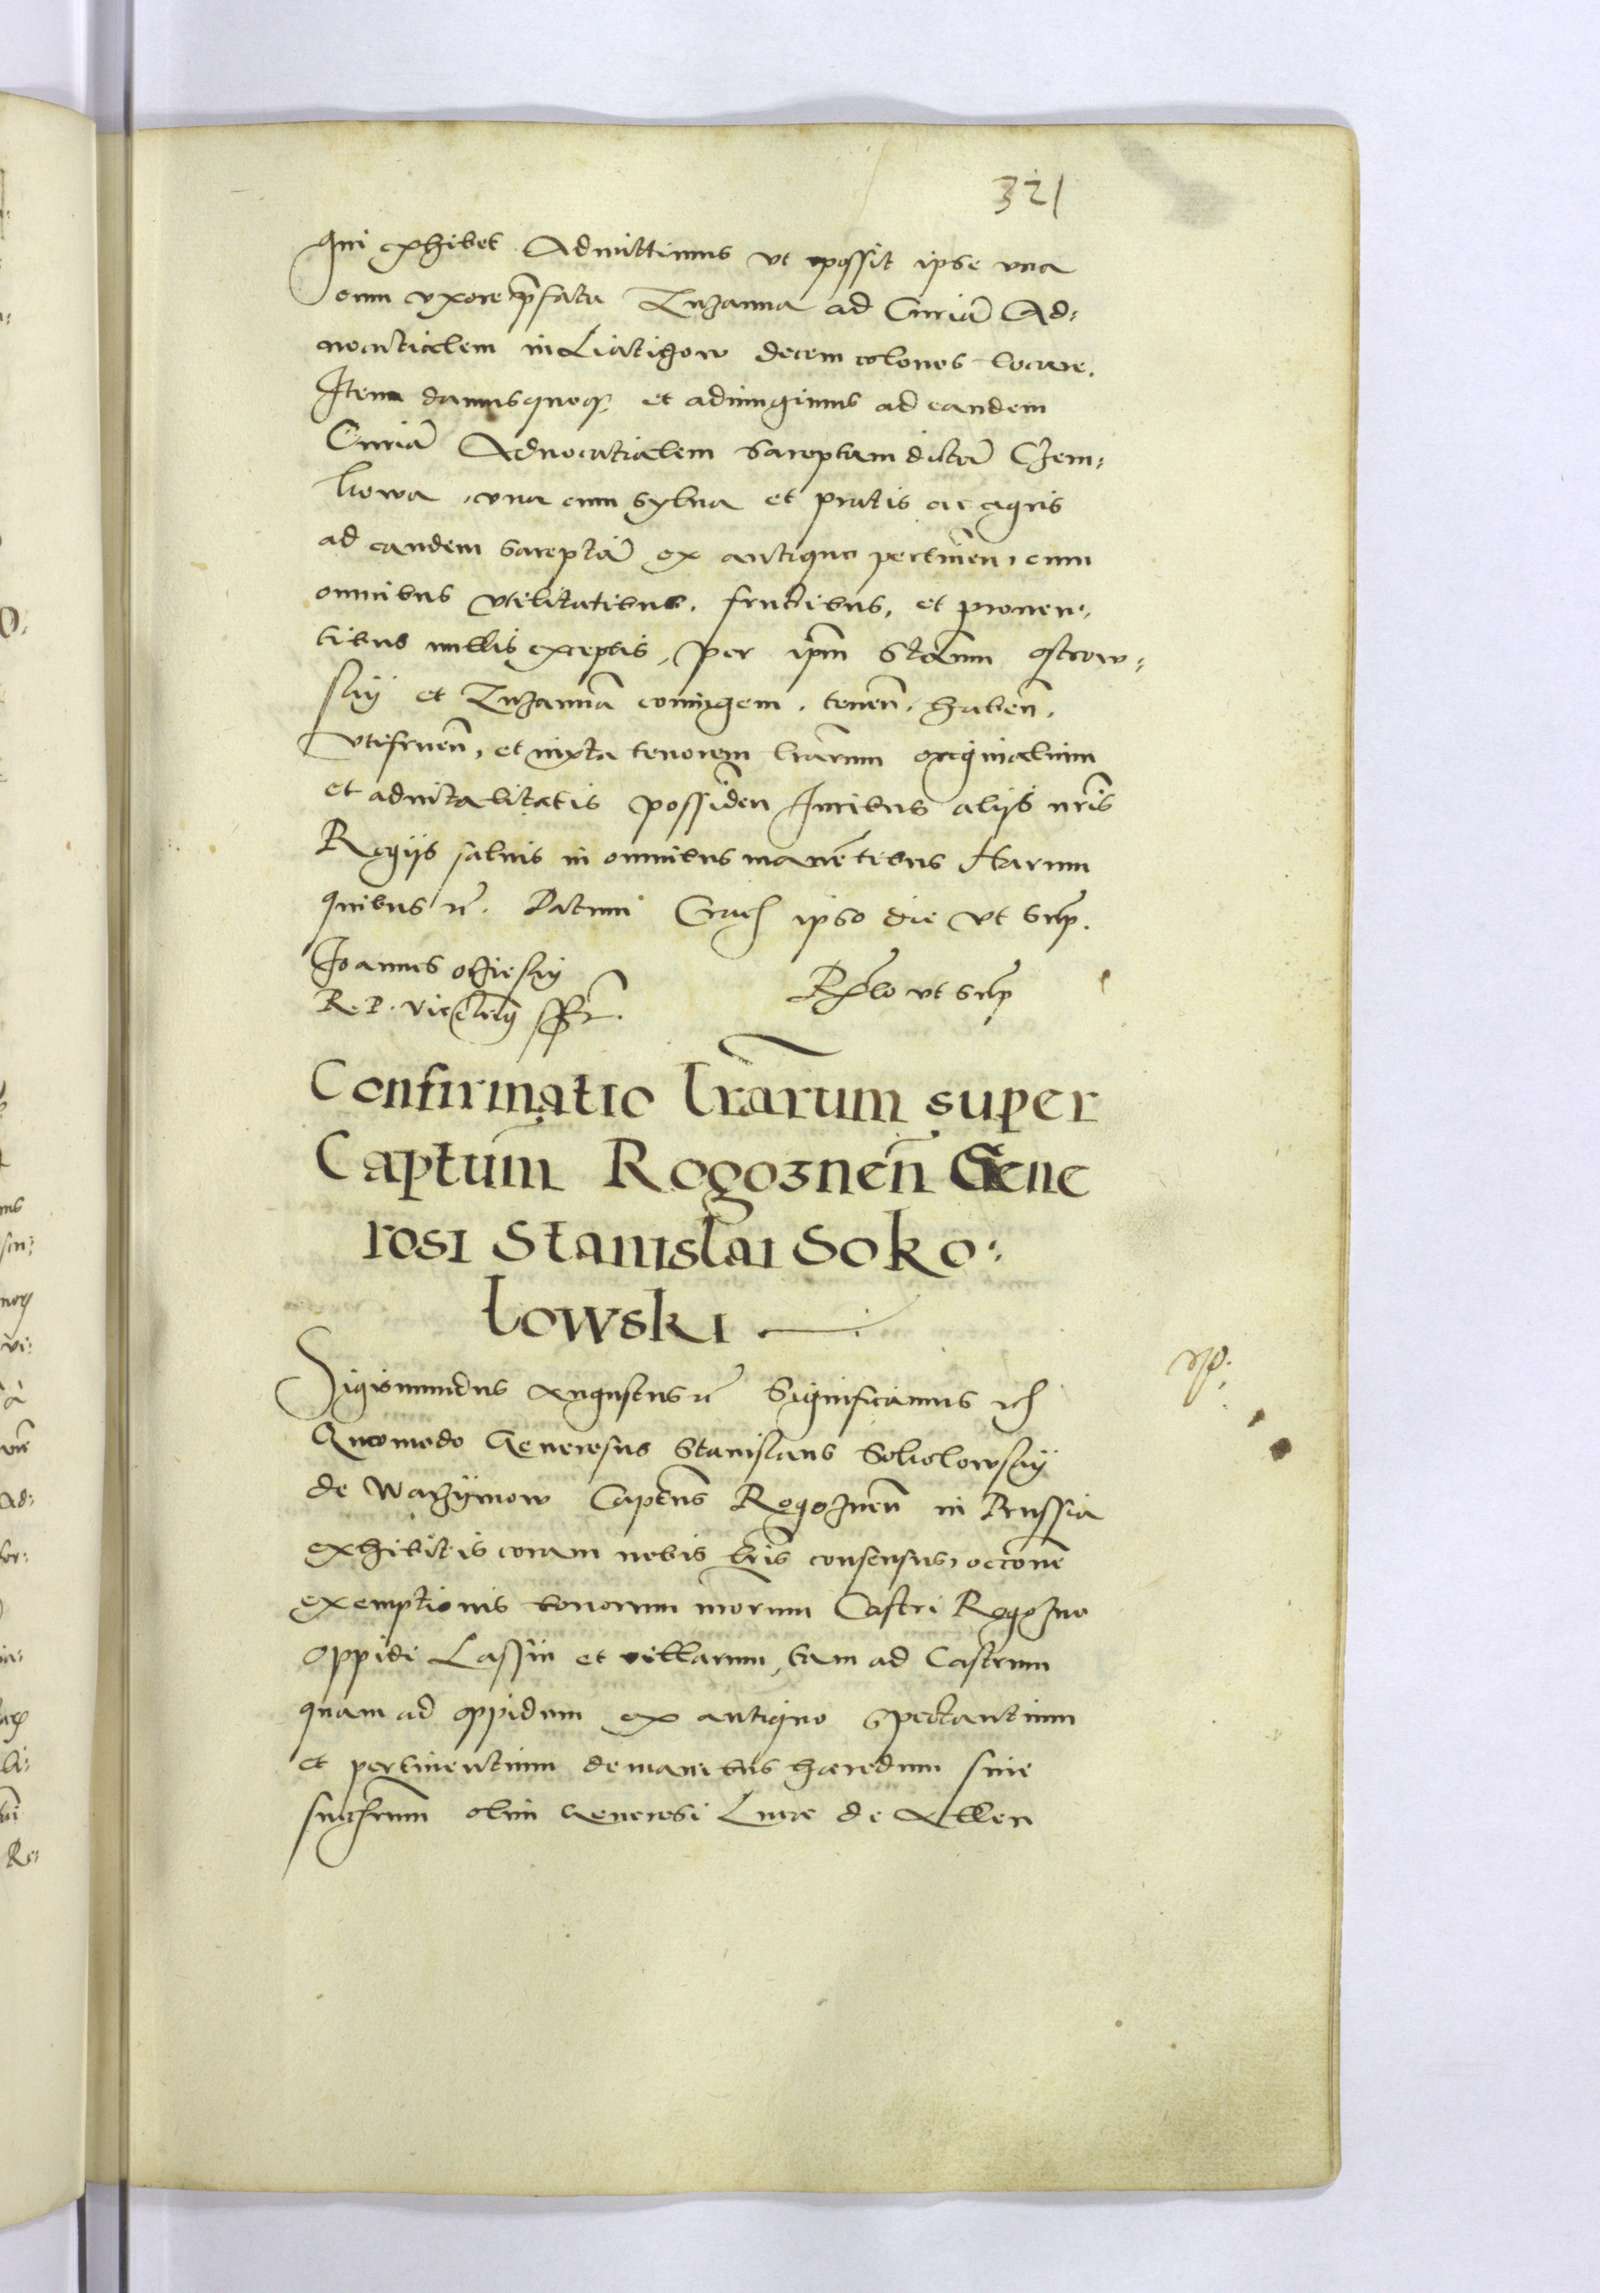 321
qui exhibet. Admittimus vt possit ipse vna
cum vxore p̄fata Zuzanna ad Curiā Ad:
uocatialem in Liatigow decem colonos locare.
Item damus quoq3 et adiungimus ad eandem
Curiā Aduocatialem sareptam dictā Czem:
kowa, vna cum sylua et pratis ac agris
ad eandem sareptā ex antiquo pertineñ, cum
omnibus vtilitatibus, fructibus, et prouen:
tibus nullis exceptis, per ipm̄ Stanm̄ ostrow:
sky et Zuzannā coniugem, teneñ, habeñ,
vtifrueñ, et iuxta tenorem lrārum originalium
et aduitalitatis possideñ Iuribus alijs nr̄is
Regijs saluis in omnibus manētibus Harum
quibus etc̄. Datum Crac̄ ipso die vt sup̄.
Joannes ocziesky
R. P. vicecancell̄ sspt̄.
Rlo vt sup̄
Confirmatio lrārum super
Captum̄ Rogozneñ Gene
rosi Stanislai Soko:
lowski
Sigismundus Augustus etc̄ Significamus etc̄
Quomodo Generosus Stanislaus Sokolowsky
de Wazÿnow Capten̄s Rogozneñ in Prussia
exhibitis coram nobis lr̄is consensus, occ̄one
exemptionis bonorum nr̄orum Castri Rogozno
oppidi Lassin et villarum, tam ad Castrum
quam ad oppidum ex antiquo spectantium
et pertinentium de manibus hæredum siue
succ̄sorum olim Generosi Lucæ de Allen